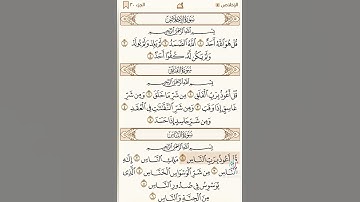 الإخلاص
الجزء ٣٠
سُورَةُ الإِخْلَاصِ
بِسْمِ اللَّهِ الرَّحْمَٰنِ الرَّحِيمِ
قُلْ هُوَ اللَّهُ أَحَدٌ ۝١ اللَّهُ الصَّمَدُ ۝٢ لَمْ يَلِدْ وَلَمْ يُولَدْ ۝٣
وَلَمْ يَكُن لَّهُ كُفُوًا أَحَدٌ ۝٤
سُورَةُ الفَلَقِ
بِسْمِ اللَّهِ الرَّحْمَٰنِ الرَّحِيمِ
قُلْ أَعُوذُ بِرَبِّ الْفَلَقِ ۝١ مِن شَرِّ مَا خَلَقَ ۝٢ وَمِن شَرِّ
غَاسِقٍ إِذَا وَقَبَ ۝٣ وَمِن شَرِّ النَّفَّاثَاتِ فِي الْعُقَدِ ۝٤
وَمِن شَرِّ حَاسِدٍ إِذَا حَسَدَ ۝٥
سُورَةُ النَّاسِ
بِسْمِ اللَّهِ الرَّحْمَٰنِ الرَّحِيمِ
قُلْ أَعُوذُ بِرَبِّ النَّاسِ ۝١ مَلِكِ النَّاسِ ۝٢ إِلَٰهِ
النَّاسِ ۝٣ مِن شَرِّ الْوَسْوَاسِ الْخَنَّاسِ ۝٤ الَّذِي
يُوَسْوِسُ فِي صُدُورِ النَّاسِ ۝٥
مِنَ الْجِنَّةِ وَالنَّاسِ ۝٦